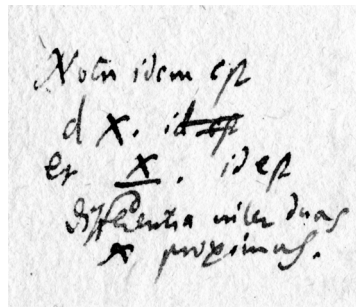 Notn idem est
d x. id est
et x. id est
differentia inter duas
x proximas.